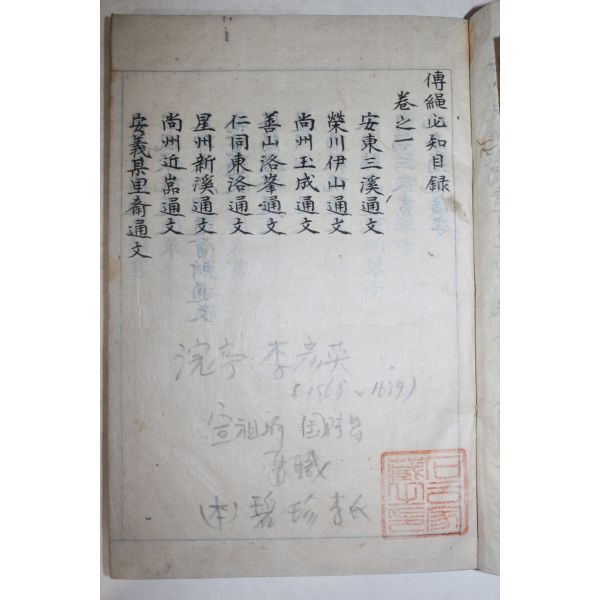 傳繩必知目録
卷之一
安東三溪通文
榮川伊山通文
尚州玉成通文
善山洛峯通文
仁同東洛通文
星州新溪通文
尚州近嵒通文
安義某里斋通文
浣亭 李彦英
(1568~1639)
宣祖時
(本) 碧珍李氏